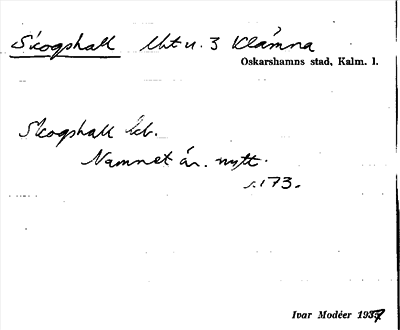 Skogshall Uht u. 3 Klämna
Oskarshamns stad, Kalm. l.
Skogshall lb.
Namnet är nytt.
s. 173.
Ivar Modéer 1937